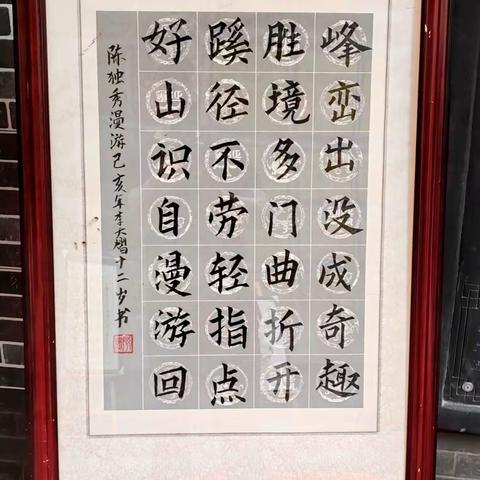 峰峦出没成奇趣
胜境多门曲折开
蹊径不劳轻指点
好山识自漫游回
陈独秀漫游己亥年李大熠十二岁书